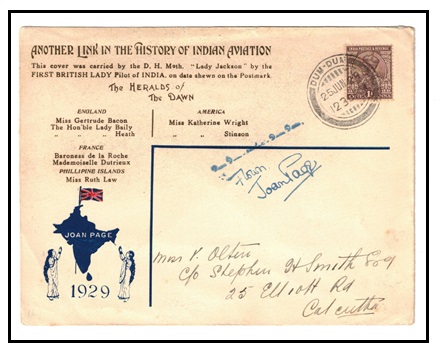 ANOTHER LINK IN THE HISTORY OF INDIAN AVIATION
This cover was carried by the D. H. Moth. "Lady Jackson" by the
FIRST BRITISH LADY Pilot of INDIA, on date shewn on the Postmark.
The HERALDS of
The DAWN
ENGLAND
Miss Gertrude Bacon
The Hon'ble Lady Baily
" " " Heath
AMERICA
Miss Katherine Wright
" " Stinson
FRANCE
Baroness de la Roche
Mademoiselle Dutrieux
PHILLIPINE ISLANDS
Miss Ruth Law
JOAN PAGE
1929
DUM-DUM
25 JUN
INDIA POSTAGE & REVENUE
Flown
Joan Page
Miss P. Olten
C/o Stephen H Smith Esq
25 Elliott Rd
Calcutta